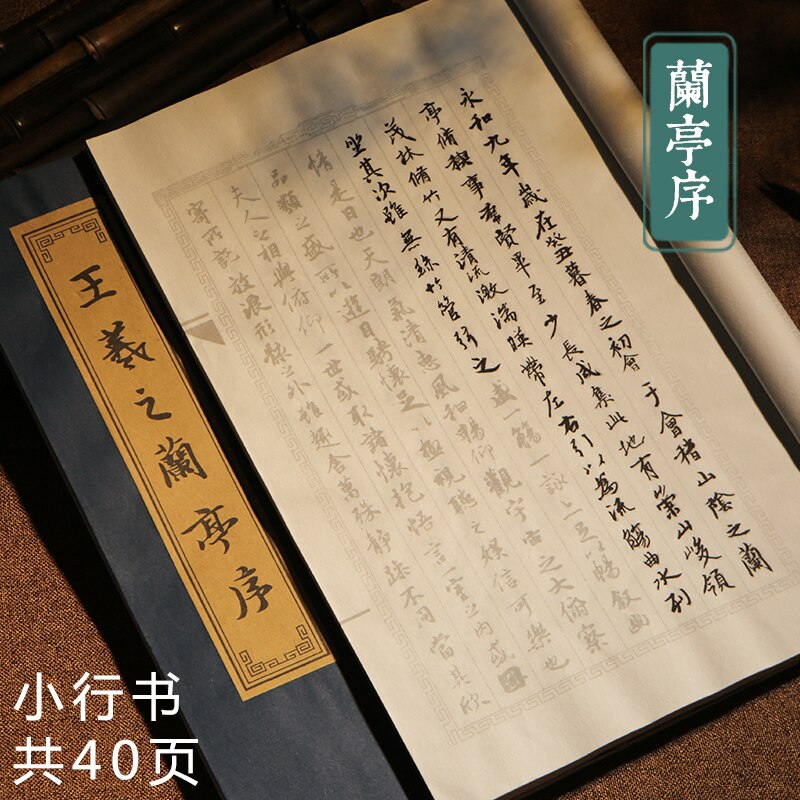 蘭亭序
永和九年歲在癸丑暮春之初會于會稽山陰之蘭
亭脩禊事羣賢畢至少長咸集此地有崇山峻領
茂林脩竹又有清流激湍暎帶左右引以為流觴曲水列
坐其次雖無絲竹管弦之盛一觴一詠亦足以暢敘幽
情是日也天朗氣清惠風和暢仰觀宇宙之大俯察
品類之盛所以遊目騁懷足以極視聽之娛信可樂也
夫人之相與俯仰一世或取諸懷抱悟言一室之內或
寄所託放浪形骸之外雖趣舍萬殊靜躁不同當其欣
王羲之蘭亭序
小行书
共40页